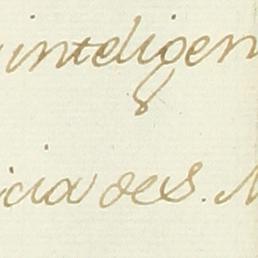 inteligen
icia de S. M